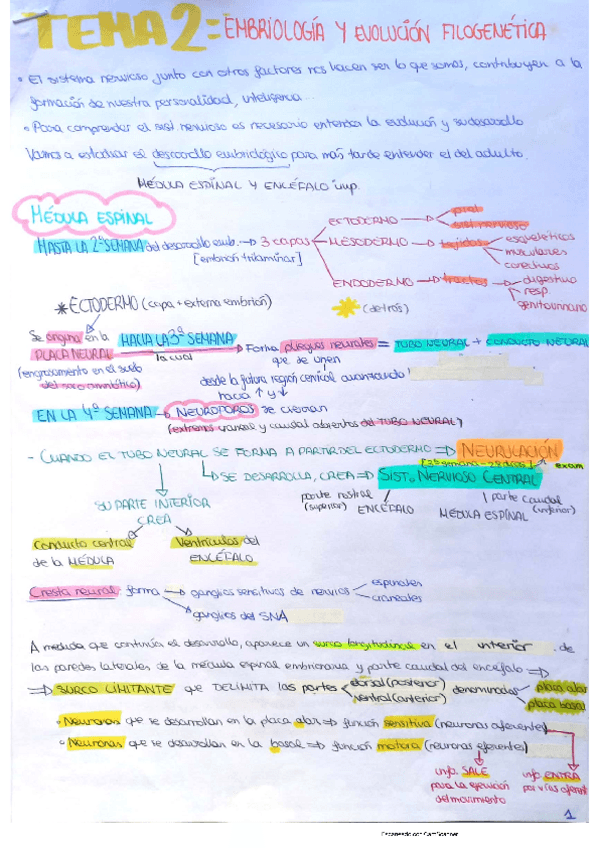 TEMA 2: EMBRIOLOGÍA Y EVOLUCIÓN FILOGENÉTICA
• El sistema nervioso junto con otros factores nos hacen ser lo que somos, contribuyen a la
formación de nuestra personalidad, inteligencia...
• Para comprender el sist. nervioso es necesario entender la evolución y su desarrollo
Vamos a estudiar el desarrollo embriológico para más tarde entender el del adulto.
MÉDULA ESPINAL Y ENCÉFALO imp.
MÉDULA ESPINAL
HASTA LA 2ª SEMANA del desarrollo emb. → 3 capas
[embrión trilaminar]
ECTODERMO → piel
sist. nervioso
MESODERMO → tejidos
esqueléticos
musculares
conectivos
ENDODERMO → tractos
digestivo
resp.
genitourinario
*ECTODERMO (capa + externa embrión)
(detrás)
Se origina en la HACIA LA 3ª SEMANA
PLACA NEURAL la cual Forma pliegues neurales = TUBO NEURAL + CONDUCTO NEURAL
(engrosamiento en el suelo
del saco amniótico)
que se unen
desde la futura región cervical avanzando
hacia ↑ y ↓
EN LA 4ª SEMANA → NEUROPOROS se cierran
(extremos craneal y caudal abiertos del TUBO NEURAL)
- CUANDO EL TUBO NEURAL SE FORMA A PARTIR DEL ECTODERMO ⇒ NEURULACIÓN
[3ª semana - 28 días] exam
SE DESARROLLA, CREA ⇒ SIST. NERVIOSO CENTRAL
parte rostral (superior) ENCÉFALO
parte caudal (inferior)
MÉDULA ESPINAL
SU PARTE INTERIOR
CREA
Conducto central
de la MÉDULA
Ventrículos del
ENCÉFALO
Cresta neural: forma → ganglios sensitivos de nervios
espinales
craneales
ganglios del SNA
A medida que continúa el desarrollo, aparece un surco longitudinal en el interior de
las paredes laterales de la médula espinal embrionaria y parte caudal del encéfalo ⇒
⇒ SURCO LIMITANTE que DELIMITA las partes
dorsal (posterior)
ventral (anterior)
denominadas
placa alar
placa basal
• Neuronas que se desarrollan en la placa alar ⇒ función sensitiva (neuronas aferentes)
• Neuronas que se desarrollan en la basal ⇒ función motora (neuronas eferentes)
info. SALE
para la ejecución
del movimiento
info. ENTRA
por vías aferent
1
Escaneado con CamScanner